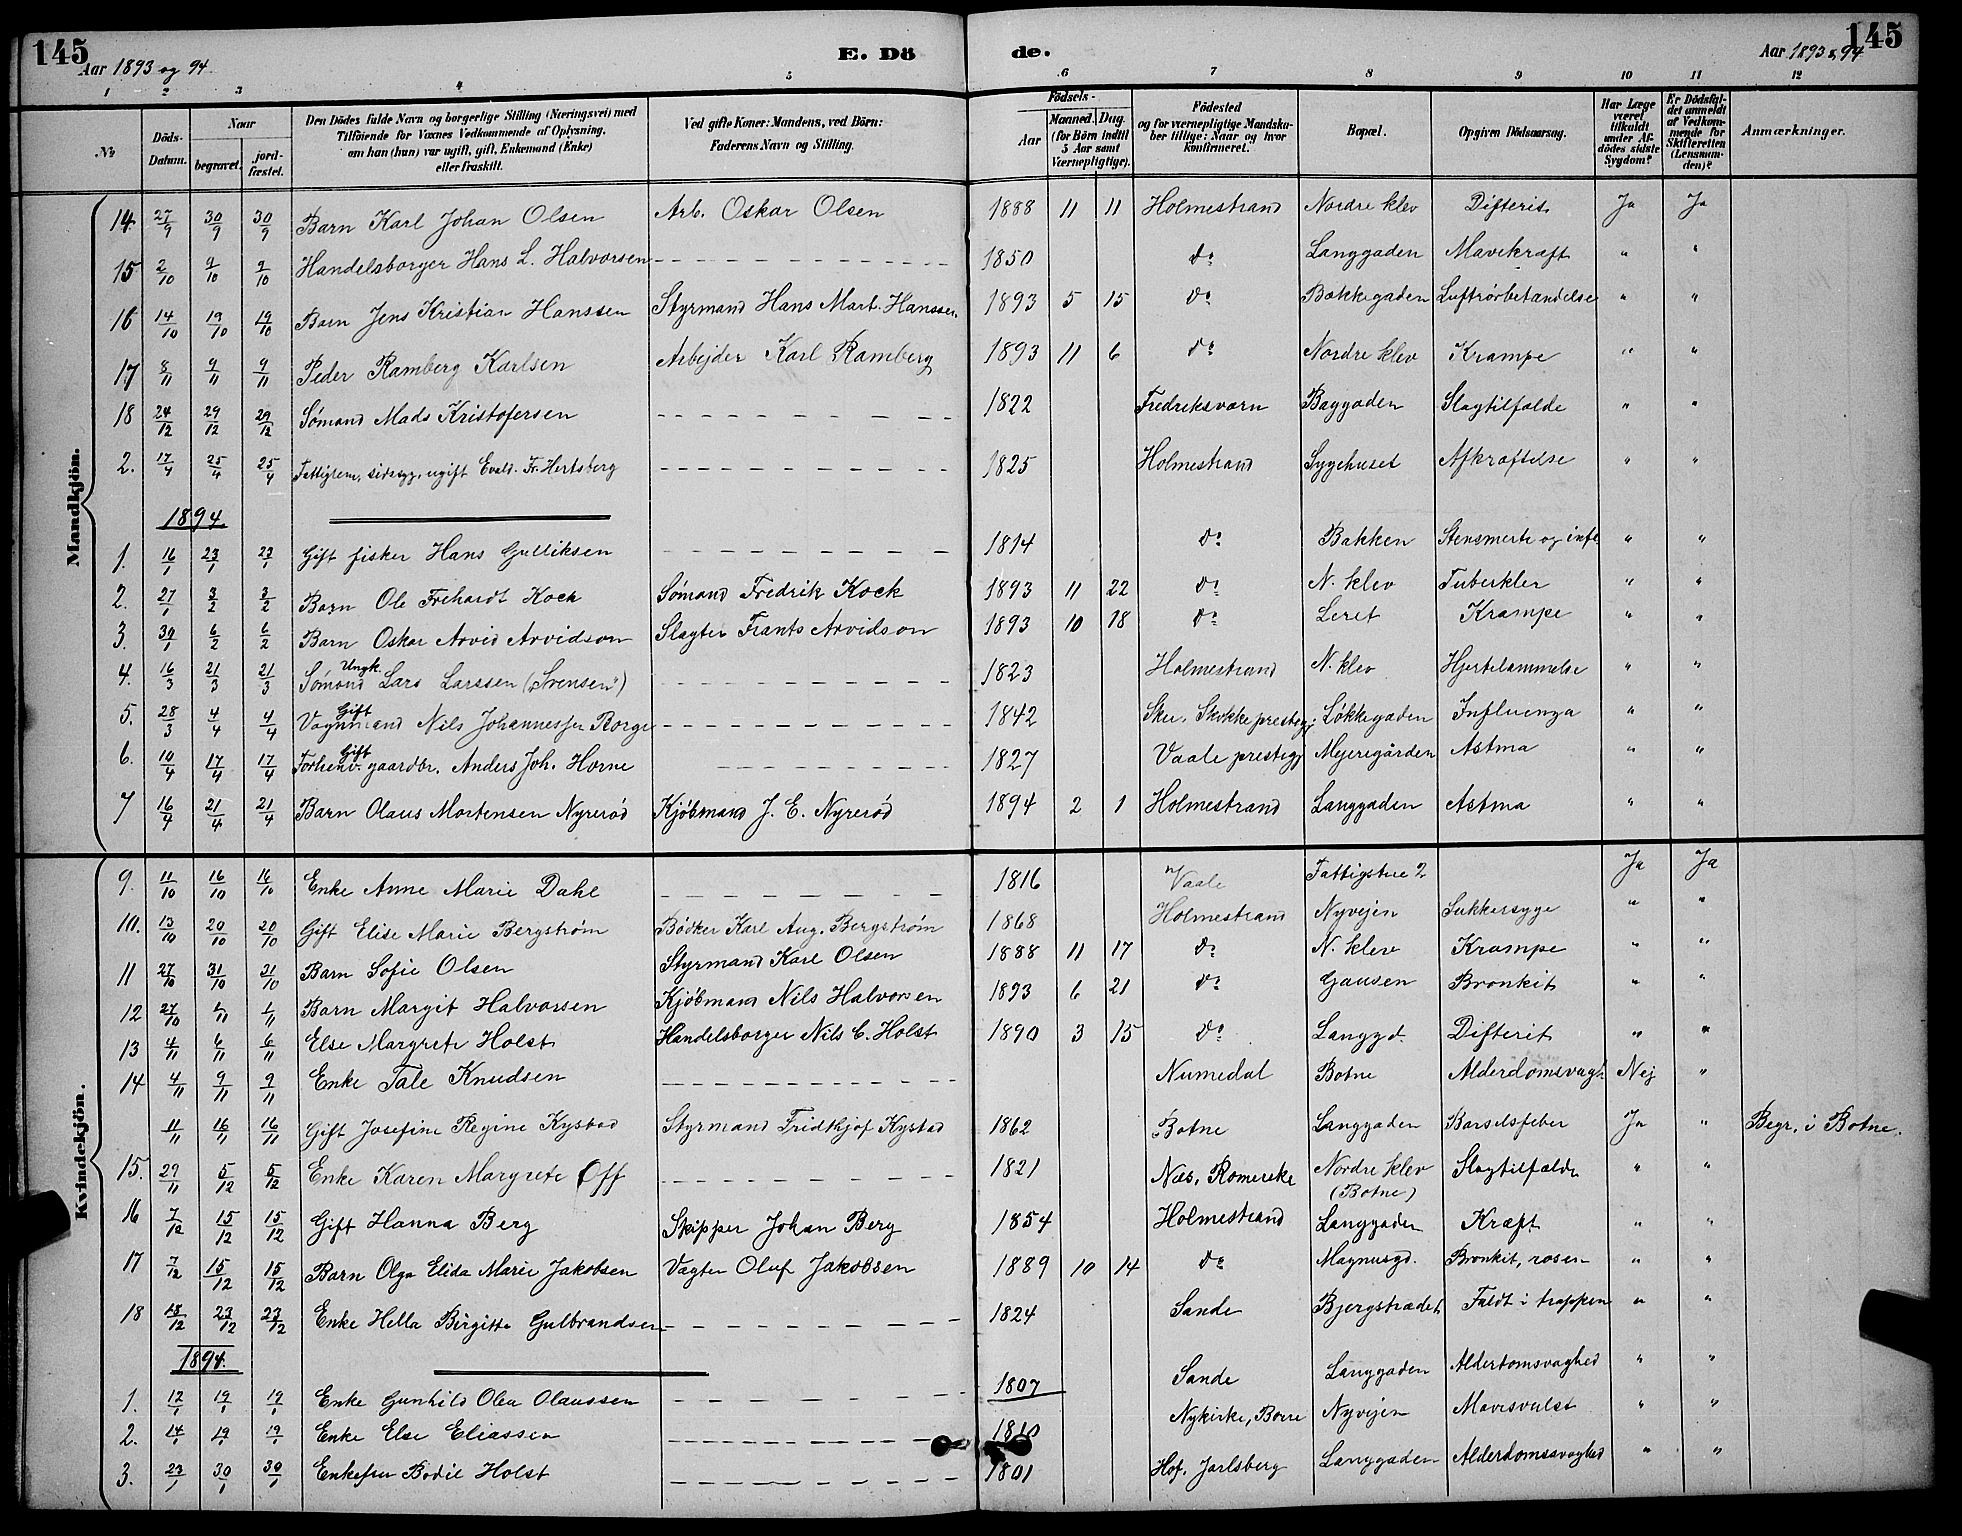 145 Aar 1893 og 94. E. Dö de. Aar 1893 & 94 145
1 2 3 4 5 6 7 8 9 10 11 12
No Döds-Datum. Naar begravet. jord-fæstet. Den Dödes fulde Navn og borgerlige Stilling (Næringsvei) med Tilföiende for Voxnes Vedkommende af Oplysning, om han (hun) var ugift, gift, Enkemand (Enke) eller fraskilt. Ved gifte Koner: Mandens, ved Börn: Faderens Navn og Stilling. Födsels- Aar Maaned. Dag. (for Börn indtil 5 Aar samt Værnepligtige). Födested og for værnepligtige Mandskaber tillige: Naar og hvor konfirmeret. Bopæl. Opgiven Dödsaarsag. Har Læge været tilkaldt under Afdödes sidste Sygdom? Er Dödsfaldet anmeldt af Vedkommende for Skifteretten (Lensmanden)? Anmærkninger.
Mandkjön.
14. 27/9 30/9 30/9 Barn Karl Johan Olsen Arb. Oskar Olsen 1888 11 11 Holmestrand Nordre klev Difterit Ja Ja
15 2/10 9/10 9/10 Handelsborger Hans L. Halvorsen 1850 do Langgaden Mavekræft " "
16 14/10 19/10 19/10 Barn Jens Kristian Hanssen Styrmand Hans Mart. Hanssen 1893 5 15 do Bækkegaden Luftrørbetændelse " "
17 8/11 9/11 9/11 Peder Ramberg Karlsen Arbejder Karl Ramberg 1893 11 6 do Nordre klev Krampe " "
18 24/12 29/12 29/12 Sømand Mads Kristofersen 1822 Fredreksværn Baggaden Slagtilfælde " "
2. 17/4 25/4 25/4 Fattiglem, sindssyg, ugift Evald. Fr. Hertsberg 1825 Holmestrand Sygehuset Afkræftelse " "
1894.
1. 16/1 23/1 23/1 Gift fisker Hans Gulliksen 1814 do Bakken Stensmerte og infl. " "
2. 27/1 3/2 3/2 Barn Ole Frehardt Kock Sømand Fredrik Kock 1893 11 22 do N. klev Tuberkler " "
3. 30/1 6/2 6/2 Barn Oskar Arvid Arvidson Slagter Frants Arvidson 1893 10 18 do Leret Krampe " "
4. 16/3 21/3 21/3 Ungk. Sømand Lars Larssen ("Svensen") 1823 Holmestrand N. klev Hjertelammelse " "
5. 28/3 4/4 4/4 Gift Vognmand Nils Johannessen Borge 1842 Løkkegaden Influenza " "
6. 10/4 17/4 17/4 Gift Forhenv. gaardbr. Anders Joh. Horne 1827 Vaale prestegj Mejeregården Astma " "
7 16/4 21/4 21/4 Barn Olaus Mortensen Nyrerød Kjøbmand J. E. Nyrerød 1894 2 1 Holmestrand Langgaden Astma " "
Kvindekjön.
9. 11/10 16/10 16/10 Enke Anne Marie Dahl 1816 Vaale Fattigstue 2 Ja Ja
10. 13/10 20/10 20/10 Gift Elise Marie Bergstrøm Bødker Karl Aug. Bergstrøm 1868 Holmestrand Nyvejen Sukkersyge " "
11 27/10 31/10 31/10 Barn Sofie Olsen Styrmand Karl Olsen 1888 11 17 do N. klev Krampe " "
12 27/10 1/11 1/11 Barn Margit Halvorsen Kjøbmand Nils Halvorsen 1893 6 21 do Gausen Bronkit " "
13 4/11 6/11 6/11 Else Margrete Holst Handelsborger Nils C. Holst 1890 3 15 do Langgd. Difterit " "
14 4/11 9/11 9/11 Enke Tale Knudsen Numedal Botne Alderdomsvagh. Nej "
11/11 16/11 16/11 Gift Josefine Regine Kystad Styrmand Fridtkjof Kystad 1862 Botne Langgaden Barselsfeber Ja " Begr. i Botne.
15. 29/11 5/12 5/12 Enke Karen Margrete Off 1821 Næs, Romerike Nordre klev (Botne) Slagtilfælde " "
16 7/12 15/12 15/12 Gift Hanna Berg Skipper Johan Berg 1854 Holmestrand Langgaden Kræft " "
17 7/12 15/12 15/12 Barn Olga Elida Marie Jakobsen Vægter Oluf Jakobsen 1889 10 14 do Magnusgd. Bronkit, rosen " "
18 18/12 23/12 23/12 Enke Hella Birgitte Gulbrandsen 1824 Sande Bjergstrædet Faldt i trappen " "
1894.
1. 12/1 19/1 19/1 Enke Gunhild Olea Olaussen 1807 Sande Langgaden Alderdomsvaghed " "
2. 14/1 19/1 19/1 Enke Else Eliassen 1810 Nykirke, Borre Nyvejen Mavesvulst " "
3. 23/1 30/1 30/1 Enkefru Bodil Holst 1801 Hof. Jarlsberg Langgaden Alderdomssvaghed " "